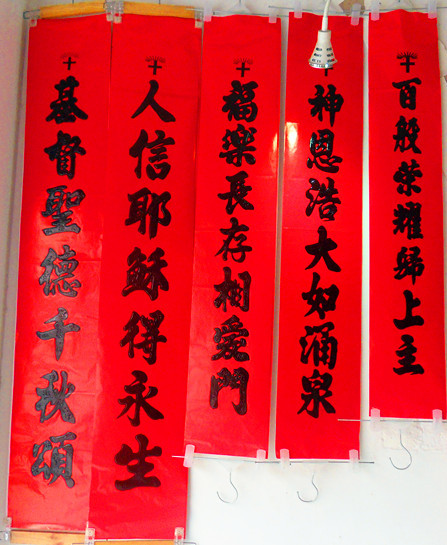 百般榮耀歸上主
神恩浩大如涌泉
福樂長存相愛門
人信耶穌得永生
基督聖德千秋頌